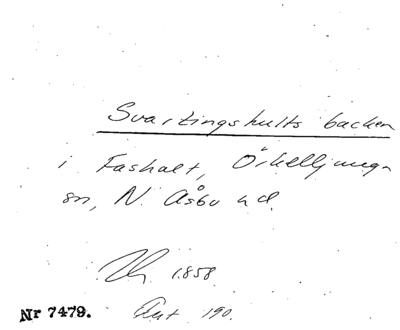 Svartingshults backen
i Fashalt, Örkelljunga
sn, N. Åsbo hd.
1858
Nr 7479. Ant 190.